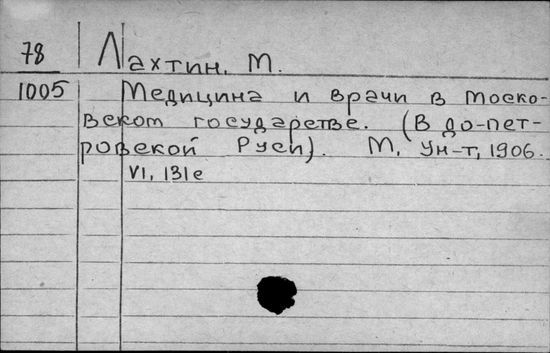 78 Лахтин, М.
1005 Медицина и врачи в Моско-
вском государстве. (В до-пет-
ровской Руси). М, Ун-т, 1906.
VI, 131с